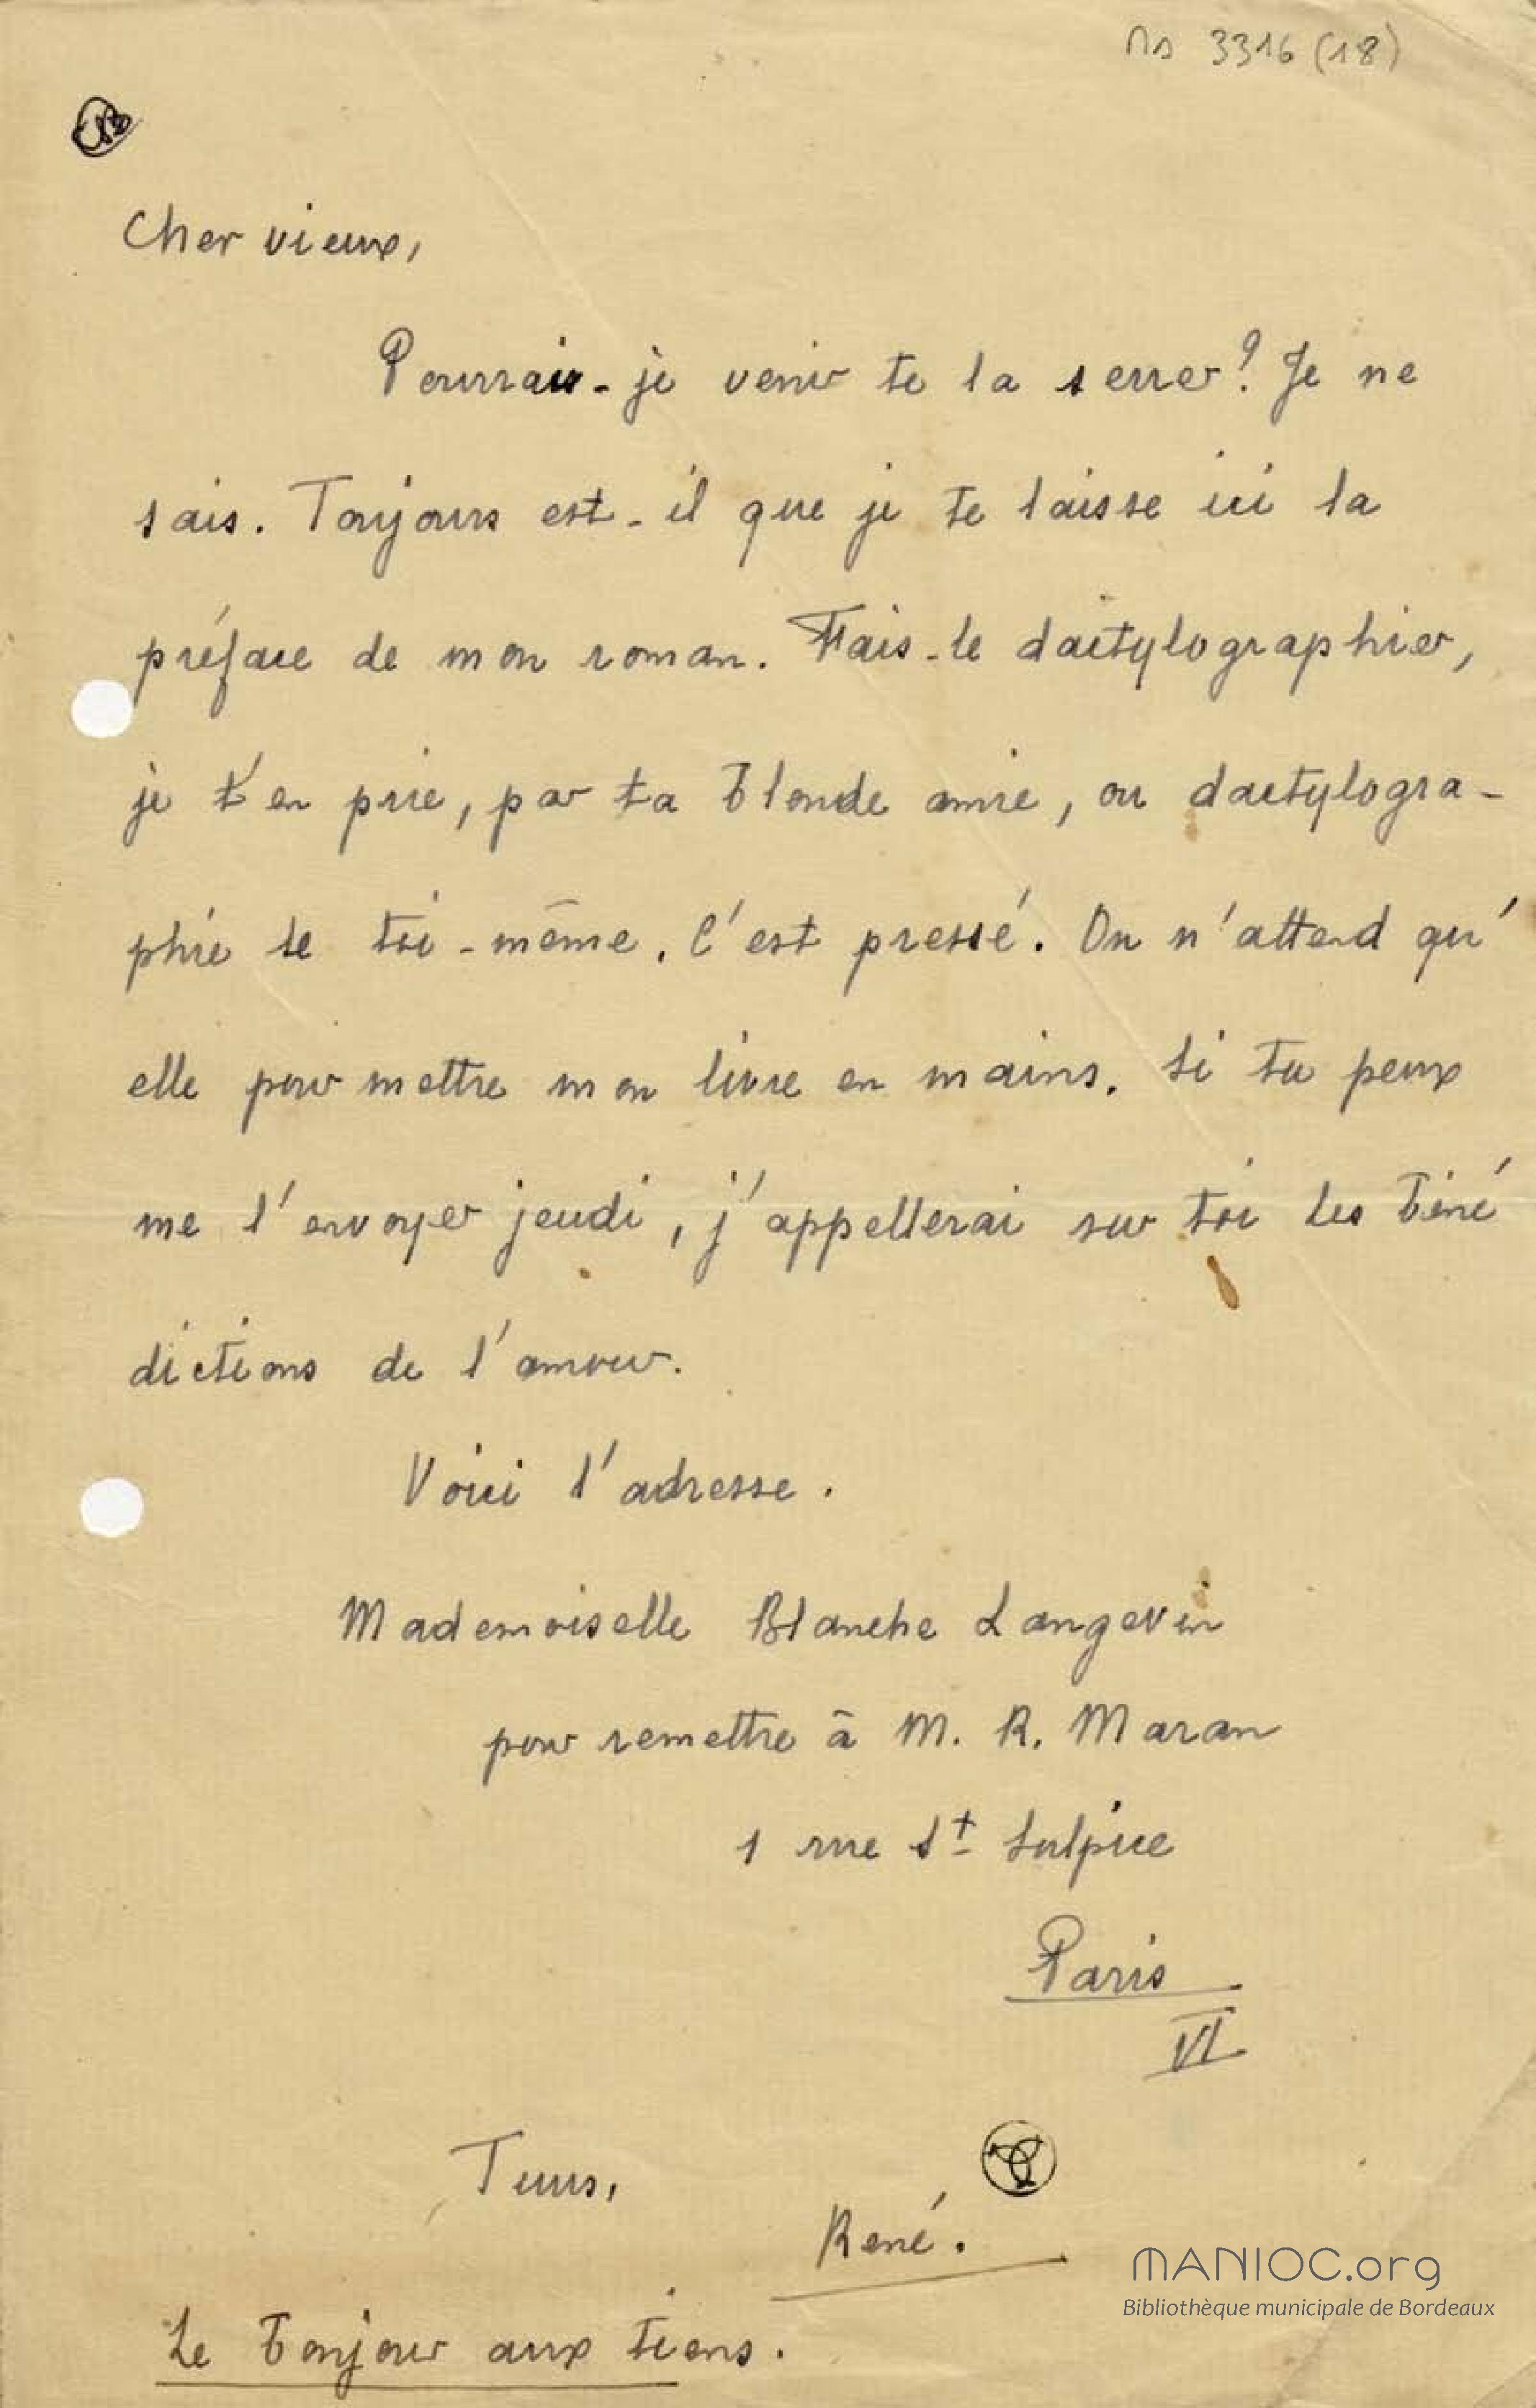 Ms 3316 (18)
Cher vieux,
Pourrais-je venir te la serrer? Je ne
sais. Toujours est-il que je te laisse ici la
préface de mon roman. Fais-le dactylographier,
je t'en prie, par ta blonde amie, ou dactylogra-
phie le toi-même. C'est pressé. On n'attend qu'
elle pour mettre mon livre en mains. Si tu peux
me l'envoyer jeudi, j'appellerai sur toi les béné
dictions de l'amour.
Voici l'adresse.
Mademoiselle Blanche Langevin
pour remettre à M. R. Maran
1 rue St Sulpice
Paris
VI
Tuus,
René.
MANIOC.org
Bibliothèque municipale de Bordeaux
Le bonjour aux tiens.